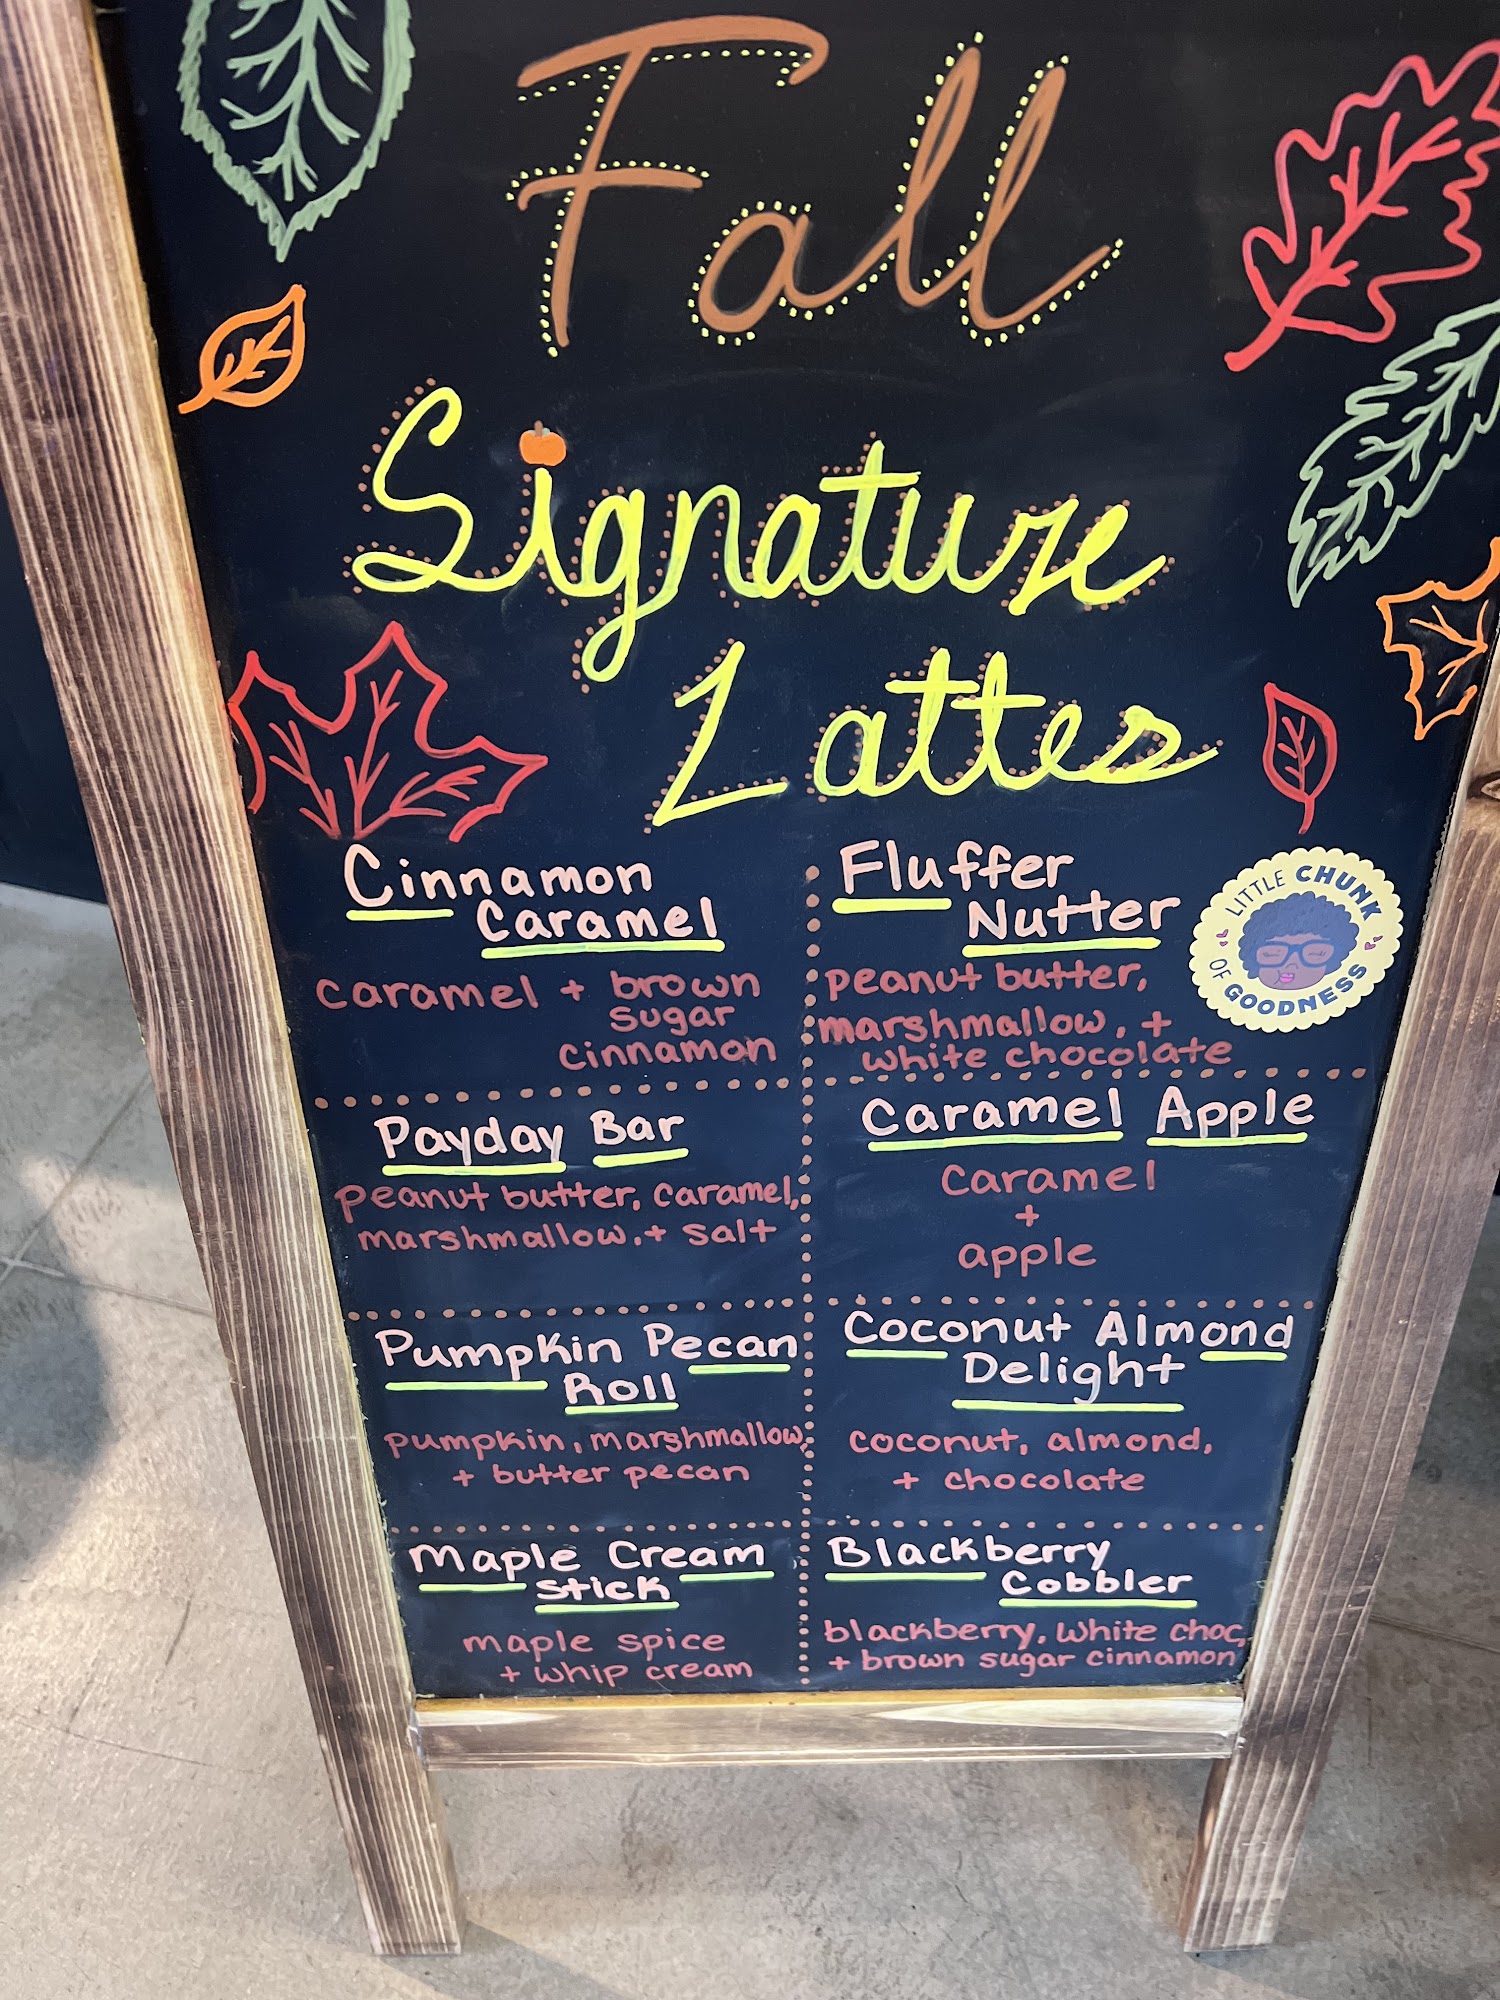 Fall
Signature
Lattes
Cinnamon
Caramel
caramel + brown
sugar
cinnamon
Fluffer
Nutter
peanut butter,
marshmallow, +
white chocolate
LITTLE CHUNK
OF GOODNESS
Payday Bar
peanut butter, caramel,
marshmallow, + salt
Caramel Apple
caramel
+
apple
Pumpkin Pecan
Roll
pumpkin, marshmallow,
+ butter pecan
Coconut Almond
Delight
coconut, almond,
+ chocolate
Maple Cream
Stick
maple spice
+ whip cream
Blackberry
Cobbler
blackberry, white choc,
+ brown sugar cinnamon